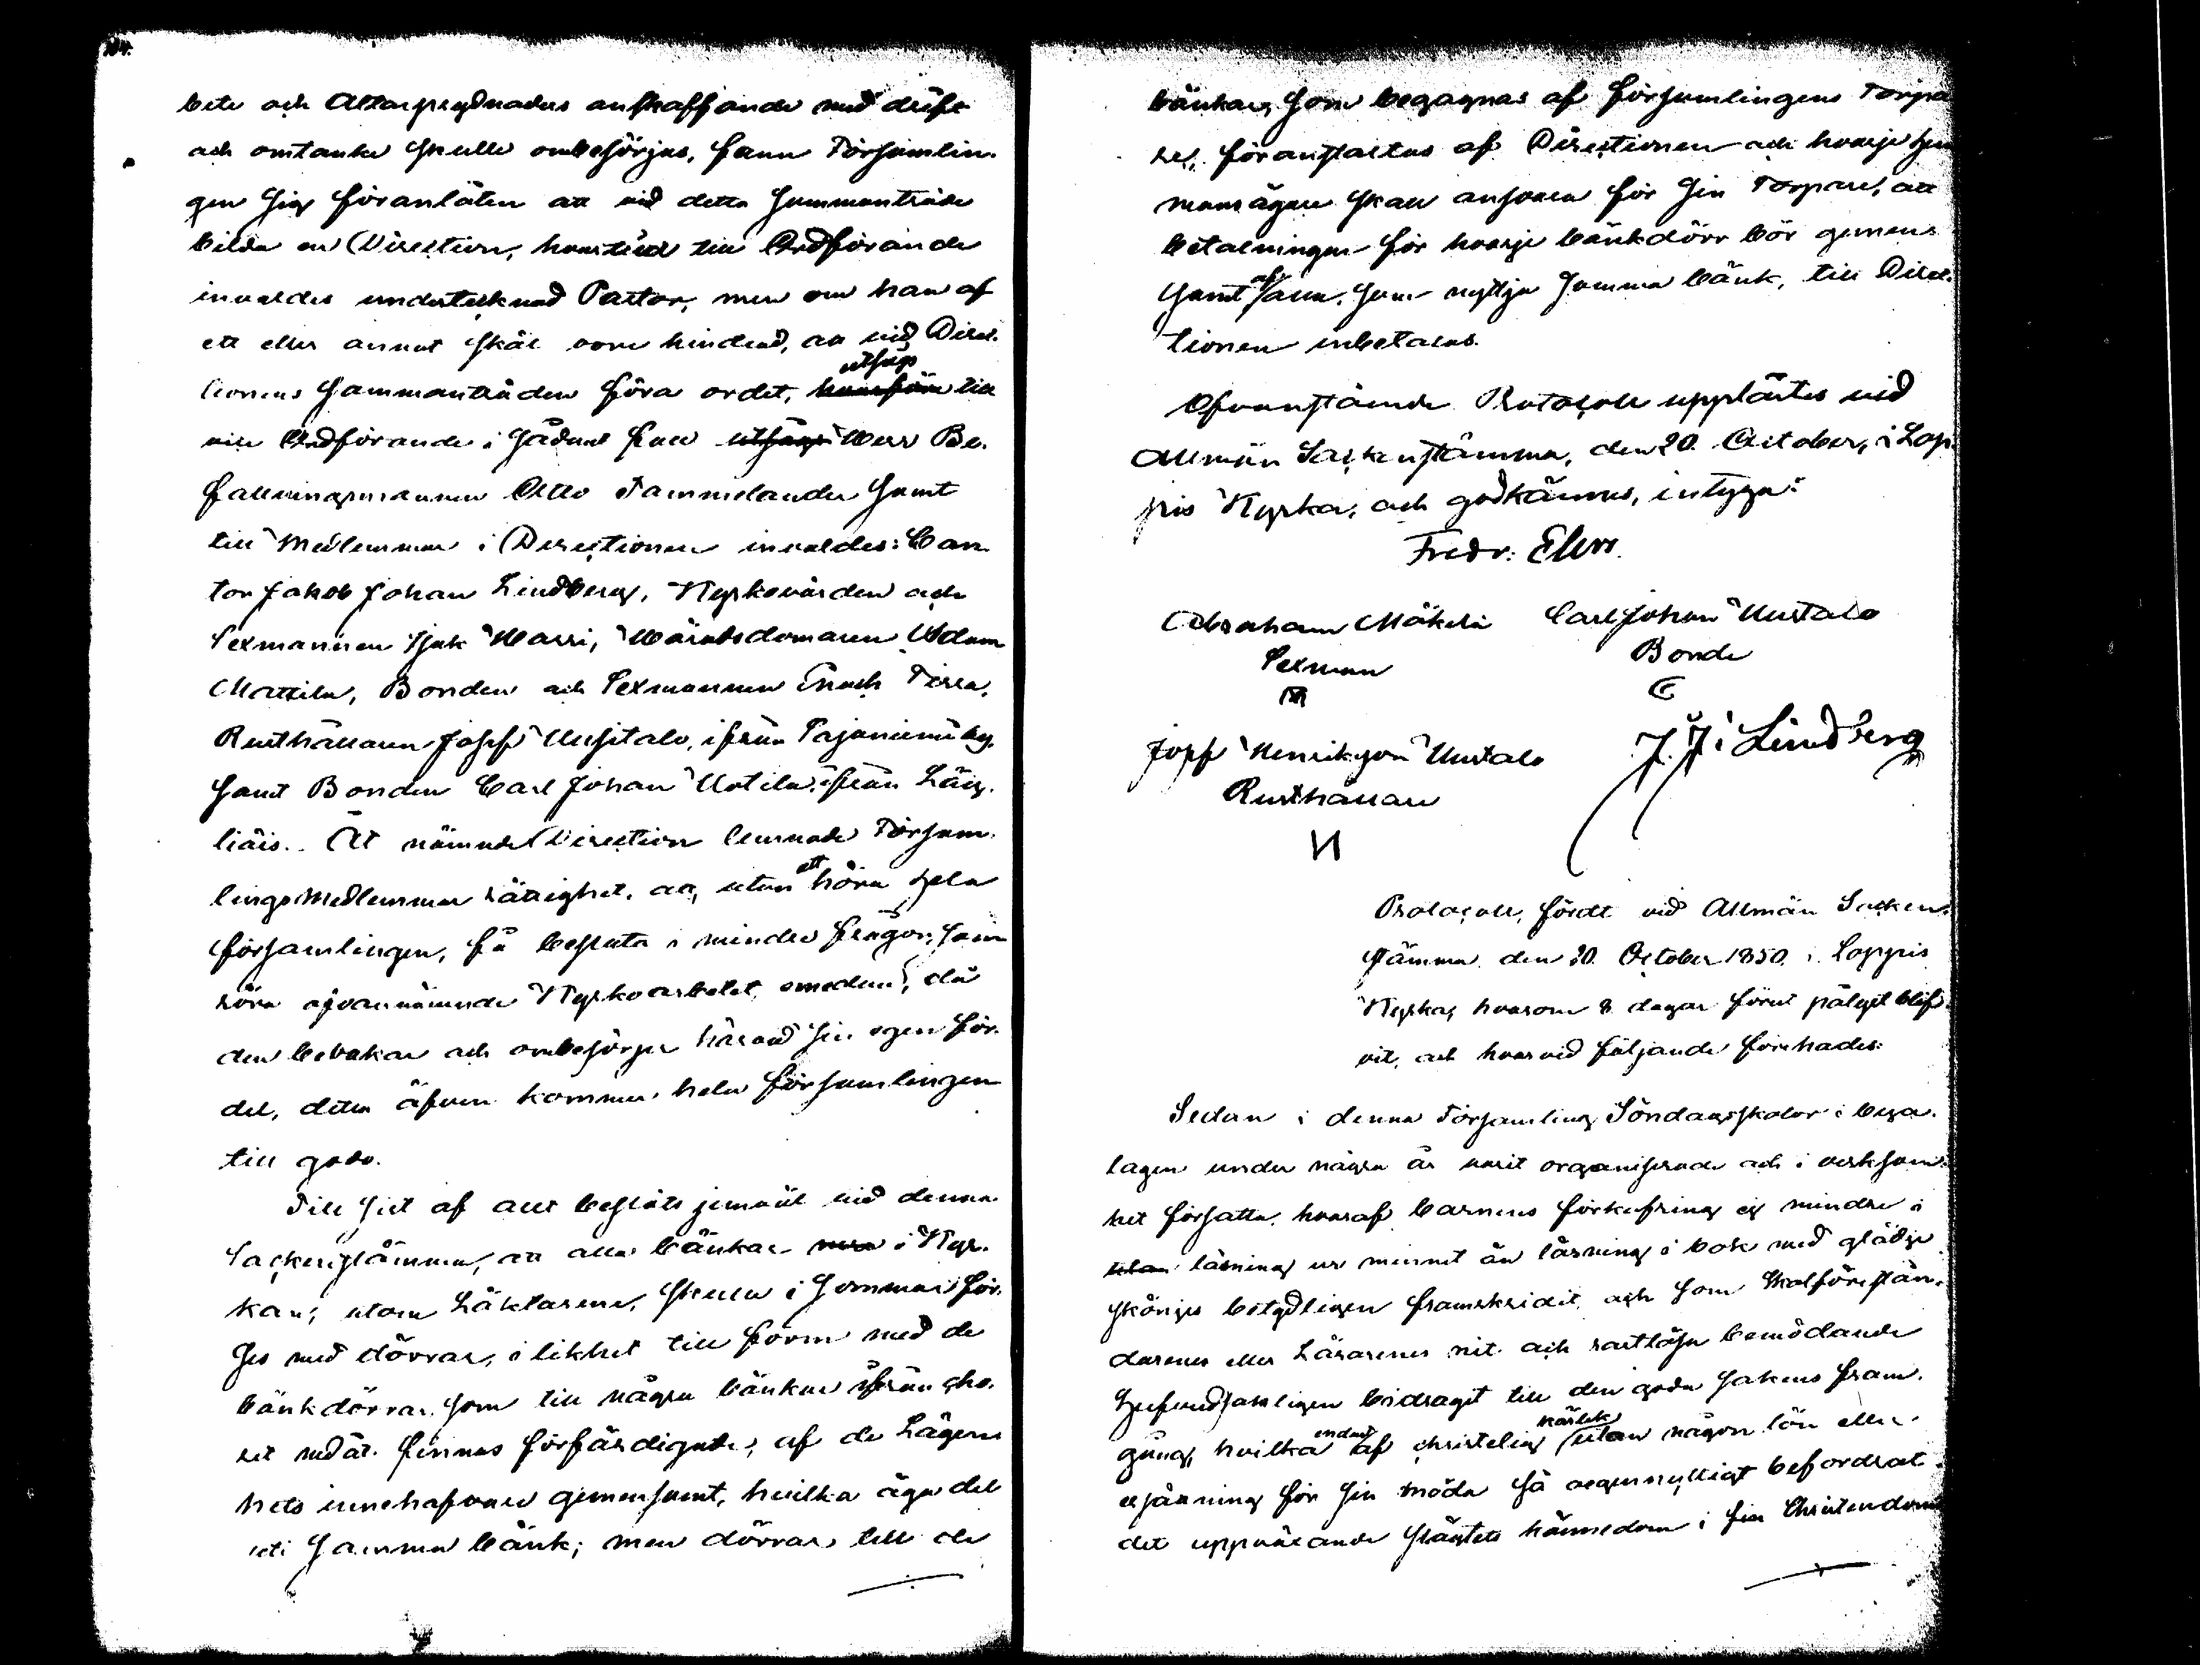 104.
bete och Altarprydnadens anskaffande med drift
och omtanke skulle ombesörjas, fann Församlin-
gen sig föranlåten att vid detta sammanträde
bilda en Direction, hvartill till Ordförande
invaldes undertecknad Pastor, men om han af
ett eller annat skäl vore hindrad, att vid Direc-
tionens sammanträden föra ordet, utsågs till
vice Ordförande i sådant fall Herr Be-
fallningsmannen Otto Tammelander samt
till Medlemmar i Directionen invaldes: Can-
tor Jakob Johan Lindberg, Kyrkovärden och
Sexmannen Isak Harri, Häradsdomaren Adam
Mattila, Bonden och Sexmannen Enoch Pirra,
Rusthållaren Josef Uusitalo, ifrån Pajaniemi by,
samt Bonden Carl Johan Uotila, ifrån Läy-
liäis. Åt nämnde Direction lemnade Försam-
lings Medlemmar rättighet, att, utan att höra hela
församlingen, få besluta i mindre frågor, som
röra ofvannämnde Kyrkoarbetet, emedan, då
den bevakar och ombesörjer härvid sin egen för-
del, detta äfven kommer hela församlingen
till godo.
Till sist af allt beslöts jemväl vid denna
Sockenstämma, att alla bänkar i Kyr-
kan, utom Läktarene, skulle i sommar för-
ses med dörrar, i likhet till form med de
bänkdörrar, som till några bänkar ifrån cho-
ret nedåt finnas förfärdigade, af de Lägen-
hets innehafvare gemensamt, hvilka äga del
uti samma bänk; men dörrar till de
bänkar, som begagnas af församlingens Torpa
re, föranstaltas af Directionen och hvarje hem
mansägare skall ansvara för sin Torpare, att
betalningen för hvarje bänkdörr bör gemen-
samt af alla, som nyttja samma bänk, till Direc-
tionen inbetalas.
Ofvanstående Protocoll upplästes vid
Allmän Sockenstämma, den 20. October, i Lop-
pis Kyrka, och godkännes, intyga:
Fredr: Elers.
Abraham Mäkelä Carl Johan Uustalo
Sexman Bonde
Josef Henriksson Uustalo J. J. Lindberg
Rusthållare
Protocoll, fördt vid Allmän Socken-
stämma den 20. October 1850. i Loppis
Kyrka, hvarom 8 dagar förut pålyst blif-
vit, och hvarvid följande förehades:
Sedan i denna Församling Söndagsskolor i bya-
lagen under några år varit organiserade och i verksam-
het försatta, hvaraf barnens förkofring ej mindre i
läsning ur minnet än läsning i bok med glädje
skönjes betydligen framskridit, och som Skolförestån-
darenes eller Lärarenes nit och rastlösa bemödande
hufvudsakligen bidragit till den goda sakens fram-
gång, hvilka endast af christelig kärlek utan någon lön eller
ersättning för sin möda så oegennyttigt befordrat
det uppväxande släktets kännedom i sin Christendom